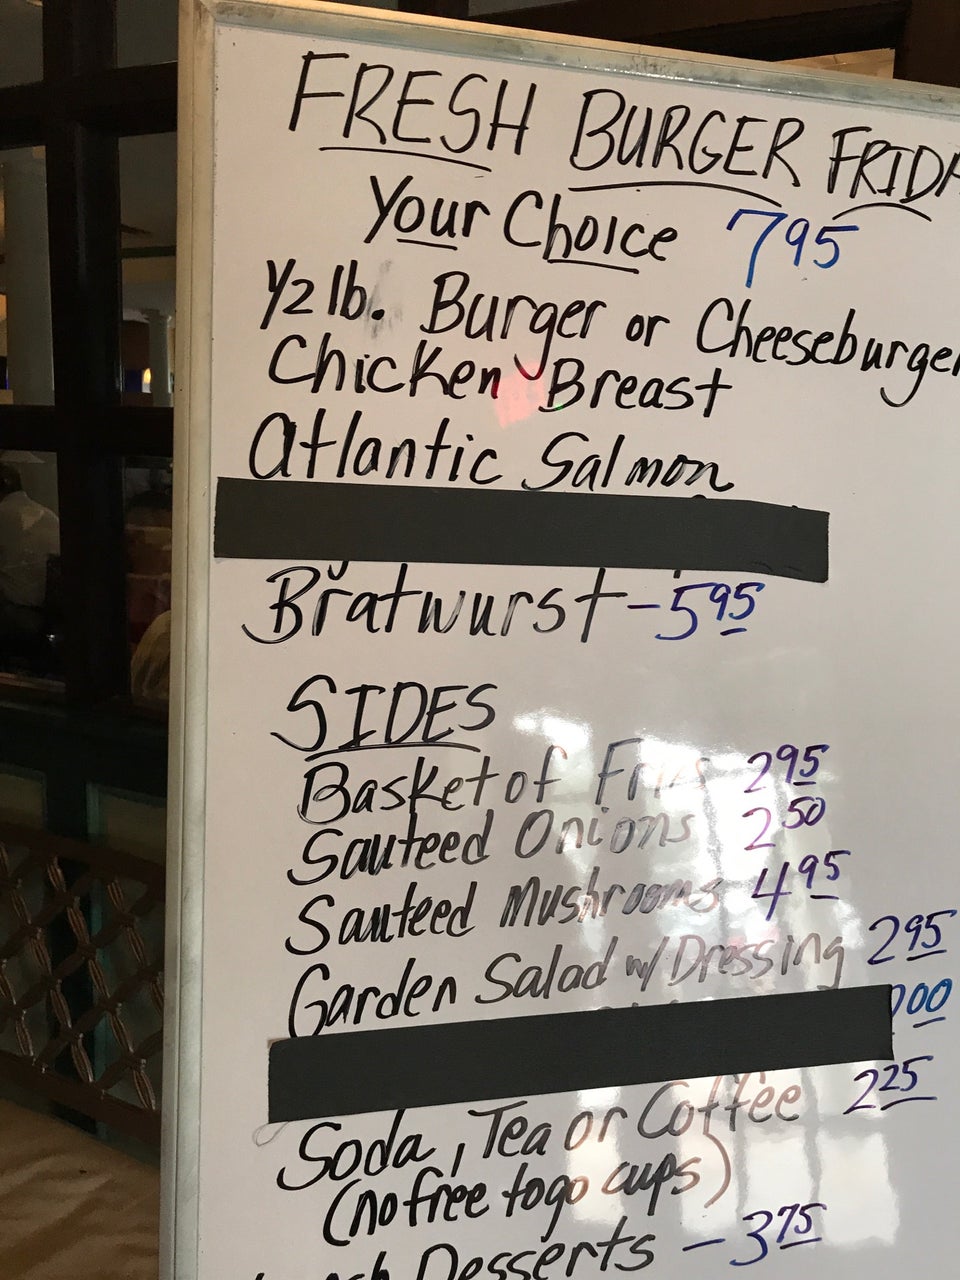 FRESH BURGER FRIDA
Your Choice 795
1/2 lb. Burger or Cheeseburger
Chicken Breast
Atlantic Salmon
Bratwurst - 595
SIDES
Basket of Fries 295
Sauteed Onions 250
Sauteed Mushrooms 495
Garden Salad w/ Dressing 295
00
Soda, Tea or Coffee 225
(no free togo cups)
Desserts - 375